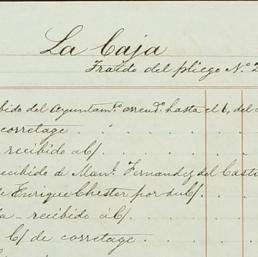 La Caja
Traido del pliego Nº 2
bido del Ayuntamº arrendº hasta el 6, del
corretage
recibido a/c/
ecibido de Manl. Fernandez del Cast
e Enrique Chester por su c/
ta - recibido a/c/
b/ de corretage